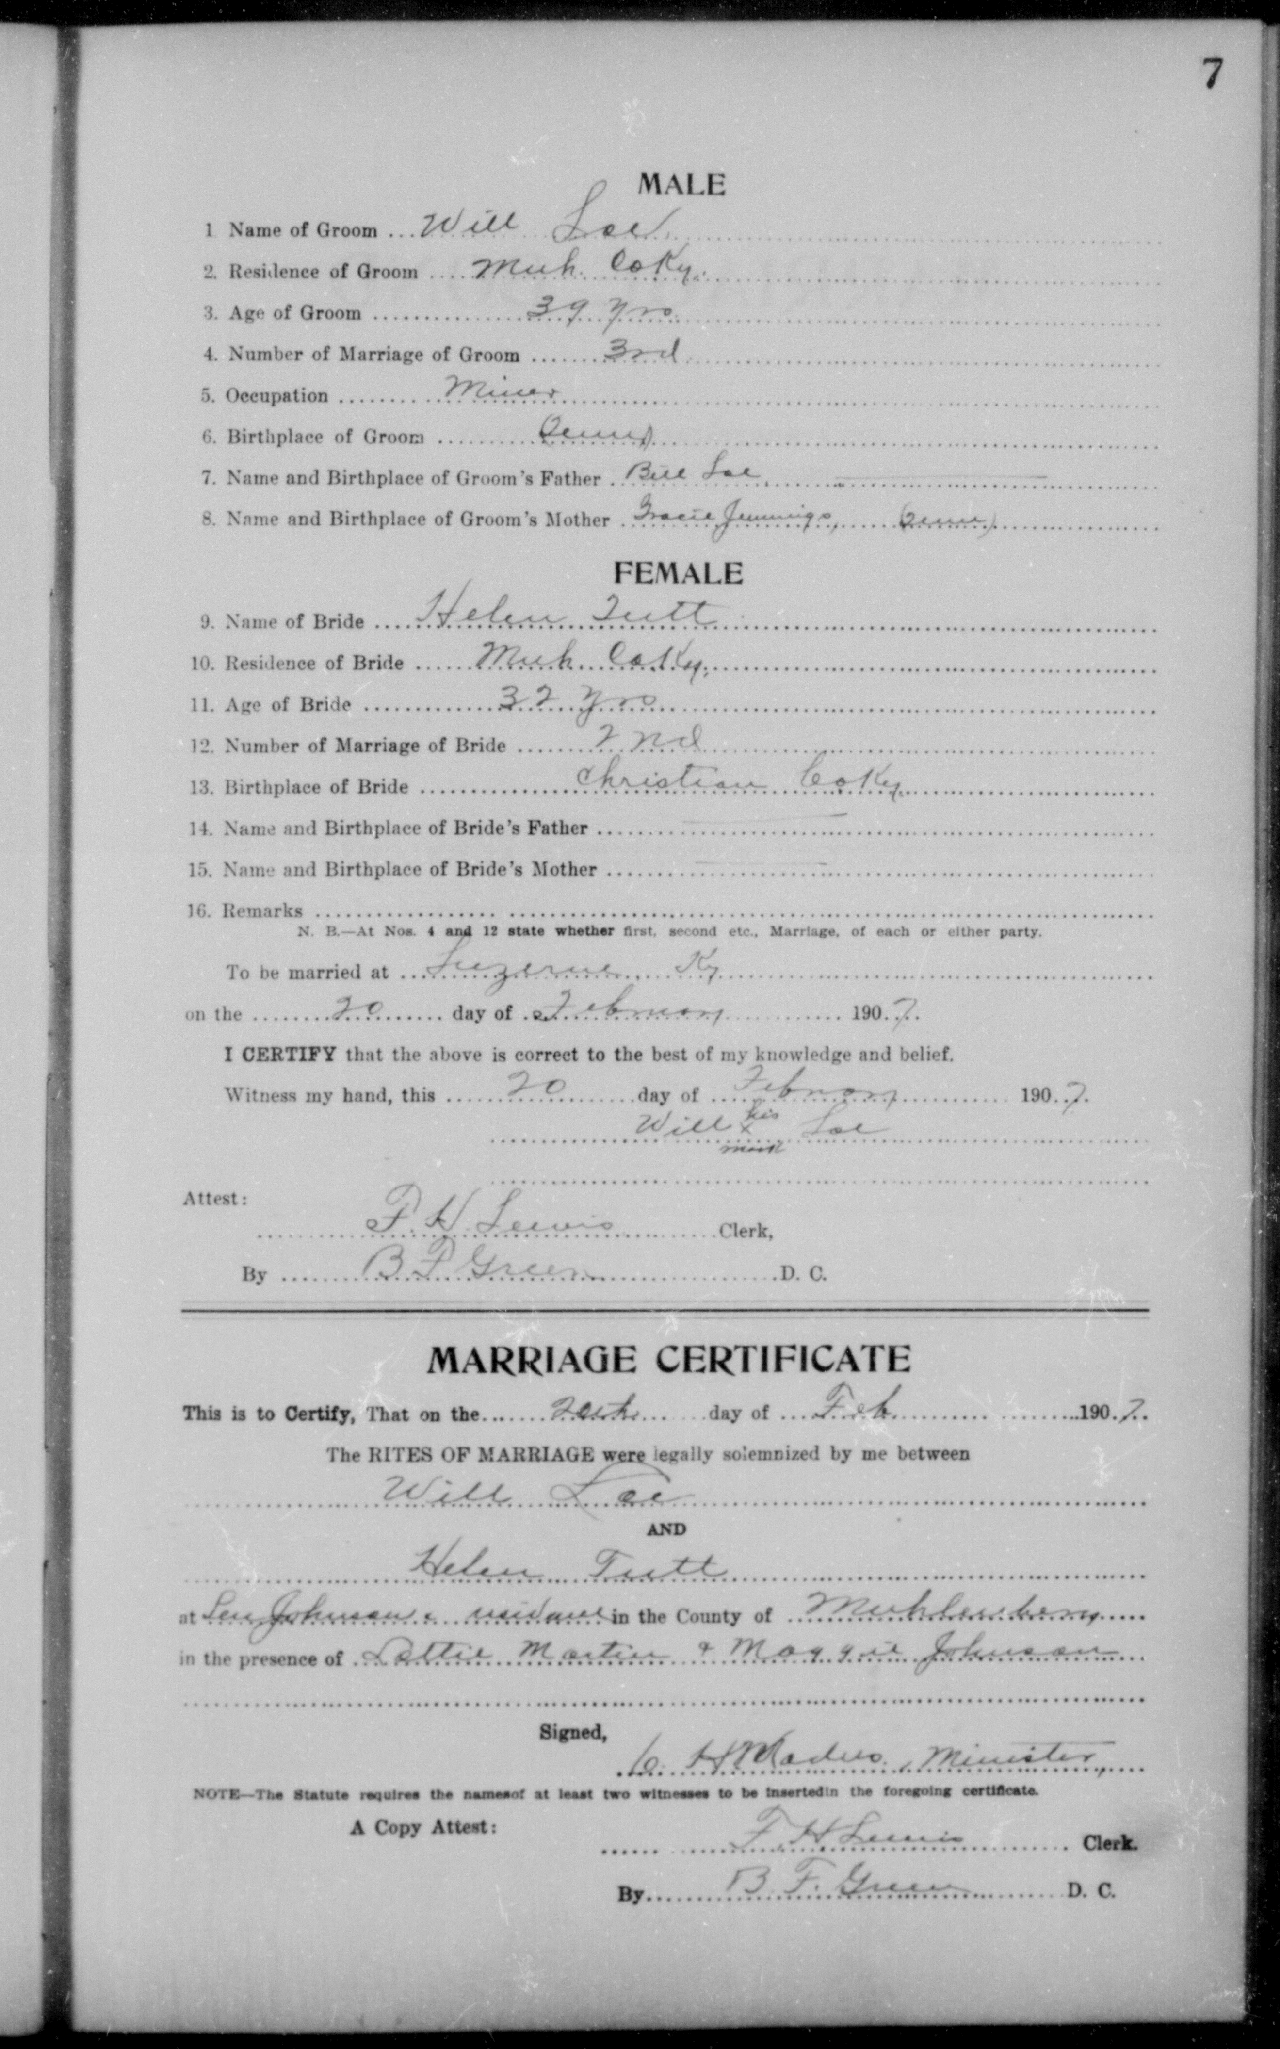 7
MALE
1 Name of Groom ... Will Loe
2. Residence of Groom .... Muh. Co Ky.
3. Age of Groom ............... 39 yrs.
4. Number of Marriage of Groom ....... 3rd
5. Occupation ......... Miner
6. Birthplace of Groom ..........
7. Name and Birthplace of Groom's Father . Bill Loe,
8. Name and Birthplace of Groom's Mother . Gracie Jennings,
FEMALE
9. Name of Bride .... Helen Tutt
10. Residence of Bride ...... Muh. Co Ky.
11. Age of Bride .............. 32 yrs
12. Number of Marriage of Bride ........ 2nd
13. Birthplace of Bride ................ Christian Co Ky.
14. Name and Birthplace of Bride's Father ......
15. Name and Birthplace of Bride's Mother ......
16. Remarks ..................
N. B.—At Nos. 4 and 12 state whether first, second etc., Marriage, of each or either party.
To be married at ... Luzerne Ky
on the ........ 20 ....... day of . February ............ 190.7.
I CERTIFY that the above is correct to the best of my knowledge and belief.
Witness my hand, this ...... 20 ......... day of .... February .......... 190.7.
his
Will x Loe
mark
Attest:
F. H. Lewis ........ Clerk,
By ........ B F Green .................... D. C.
MARRIAGE CERTIFICATE
This is to Certify, That on the ...... day of .... Feb ................. 190.7..
The RITES OF MARRIAGE were legally solemnized by me between
Will Loe
AND
Helen Tutt
at Johnson residence in the County of .. Muhlenberg .....
in the presence of .. Lottie Martin & Maggie Johnson ...
Signed,
C. H. , Minister,
NOTE—The Statute requires the namesof at least two witnesses to be insertedin the foregoing certificate.
A Copy Attest:
F. H Lewis ............ Clerk.
By......... B. F. Green .......... D. C.